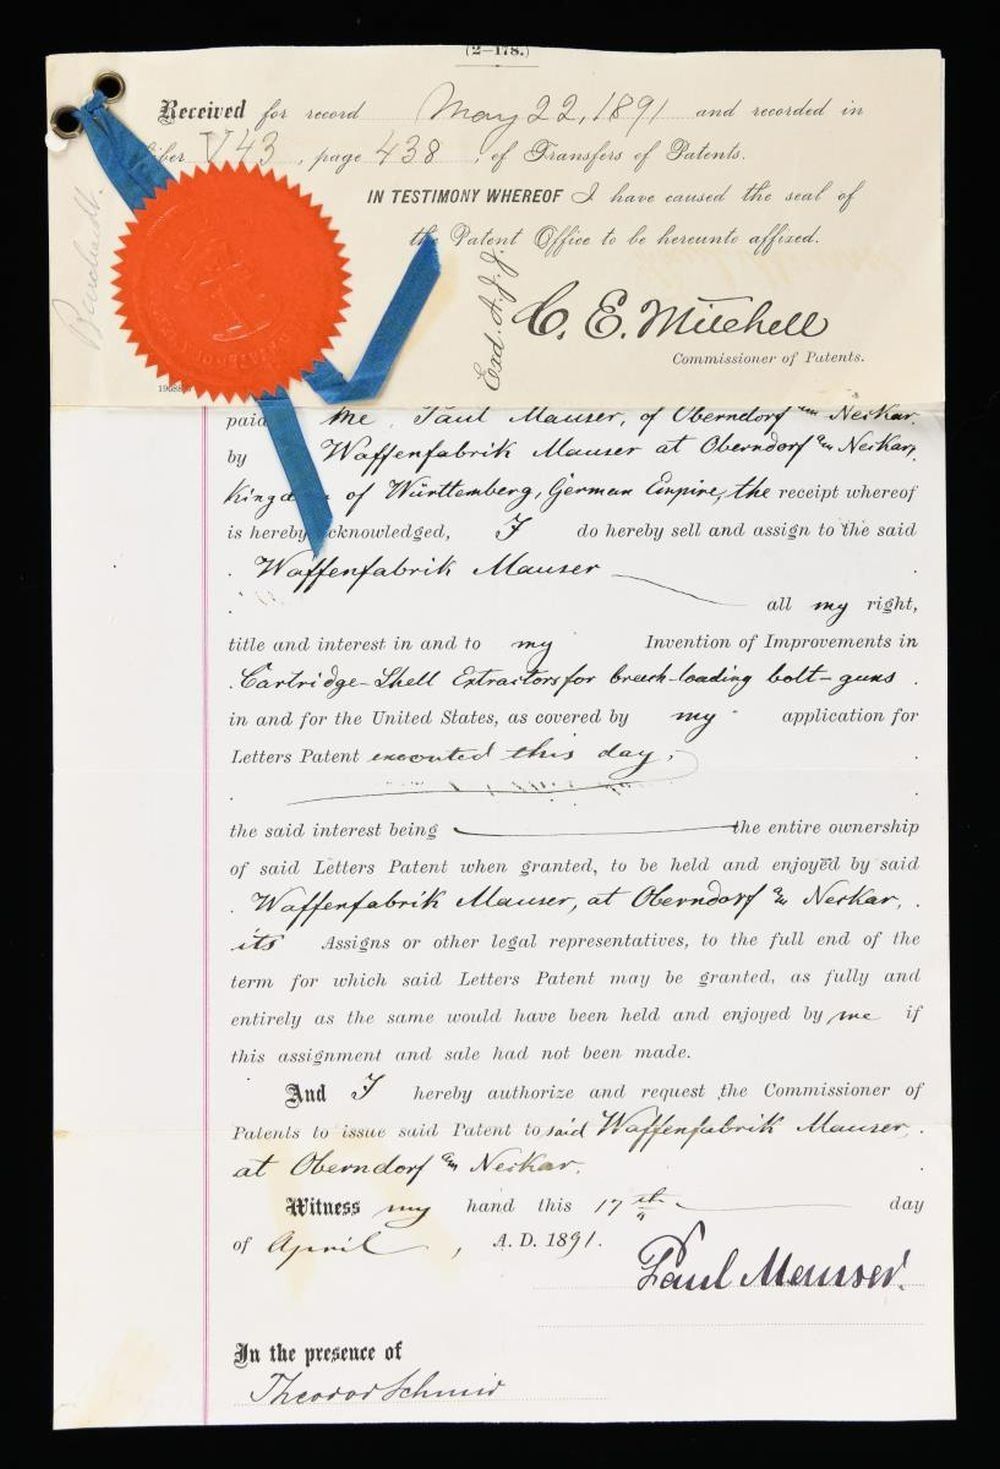 (2—178.)
Received for record May 22, 1891 and recorded in
Liber V43, page 438, of Transfers of Patents.
IN TESTIMONY WHEREOF I have caused the seal of
the Patent Office to be hereunto affixed.
Exd. A. J. J.
C. E. Mitchell
Commissioner of Patents.
paid me, Paul Mauser, of Oberndorf am Neckar,
by Waffenfabrik Mauser at Oberndorf am Neckar,
Kingdom of Württemberg, German Empire, the receipt whereof
is hereby acknowledged, I do hereby sell and assign to the said
Waffenfabrik Mauser
all my right,
title and interest in and to my Invention of Improvements in
Cartridge-Shell Extractors for breech-loading bolt-guns
in and for the United States, as covered by my application for
Letters Patent executed this day;
the said interest being the entire ownership
of said Letters Patent when granted, to be held and enjoyed by said
Waffenfabrik Mauser, at Oberndorf am Neckar,
its Assigns or other legal representatives, to the full end of the
term for which said Letters Patent may be granted, as fully and
entirely as the same would have been held and enjoyed by me if
this assignment and sale had not been made.
And I hereby authorize and request the Commissioner of
Patents to issue said Patent to said Waffenfabrik Mauser,
at Oberndorf am Neckar.
Witness my hand this 17th day
of April, A. D. 1891.
Paul Mauser.
In the presence of
Theodor Schmid